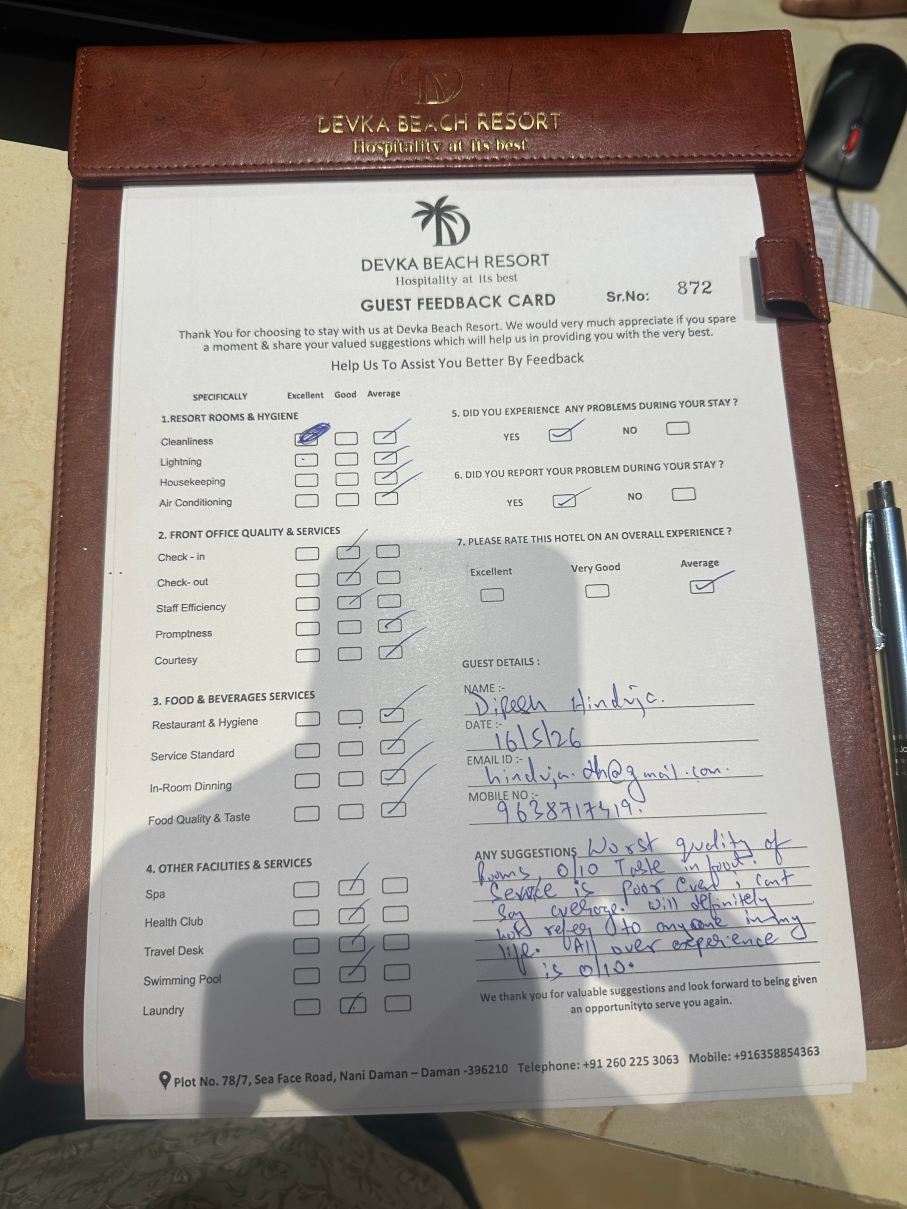 DEVKA BEACH RESORT
Hospitality at its best
DEVKA BEACH RESORT
Hospitality at its best
GUEST FEEDBACK CARD
Sr.No: 872
Thank You for choosing to stay with us at Devka Beach Resort. We would very much appreciate if you spare
a moment & share your valued suggestions which will help us in providing you with the very best.
Help Us To Assist You Better By Feedback
SPECIFICALLY Excellent Good Average
1.RESORT ROOMS & HYGIENE
Cleanliness
Lightning
Housekeeping
Air Conditioning
2. FRONT OFFICE QUALITY & SERVICES
Check - in
Check- out
Staff Efficiency
Promptness
Courtesy
3. FOOD & BEVERAGES SERVICES
Restaurant & Hygiene
Service Standard
In-Room Dinning
Food Quality & Taste
4. OTHER FACILITIES & SERVICES
Spa
Health Club
Travel Desk
Swimming Pool
Laundry
5. DID YOU EXPERIENCE ANY PROBLEMS DURING YOUR STAY ?
YES NO
6. DID YOU REPORT YOUR PROBLEM DURING YOUR STAY ?
YES NO
7. PLEASE RATE THIS HOTEL ON AN OVERALL EXPERIENCE ?
Excellent Very Good Average
GUEST DETAILS :
NAME :- Dipesh Hinduja.
DATE :- 16/5/26
EMAIL ID :- hinduja.dh@gmail.com.
MOBILE NO :- 9638717419.
ANY SUGGESTIONS Worst quality of
Rooms, 0/10 Taste in food.
Service is poor even, cant
say average. will definitely
not refer to anyone in my
life. All over experience
is 0/10.
We thank you for valuable suggestions and look forward to being given
an opportunityto serve you again.
Plot No. 78/7, Sea Face Road, Nani Daman – Daman -396210 Telephone: +91 260 225 3063 Mobile: +916358854363